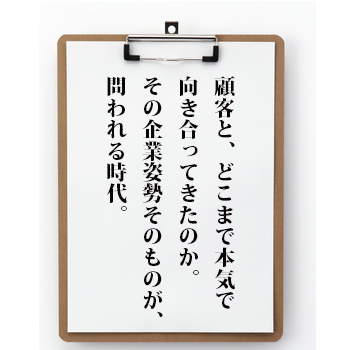 顧客と、どこまで本気で
向き合ってきたのか。
その企業姿勢そのものが、
問われる時代。